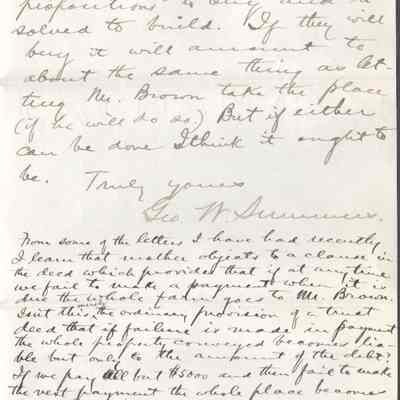 propositions to buy and
solved to build. If they will
buy it will amount to
about the same thing as let-
ting Mr. Brown take the place
(if he will do so.) But if either
can be done I think it ought to
be. Truly yours
Geo. W. Summers.
From some of the letters I have had recently
I learn that mother objects to a clause in
the deed which provides that if at any time
we fail to make a payment when it is
due the whole farm goes to Mr. Brown.
Isn't this the ordinary provision of a trust
deed that if failure is made in payment
the whole property conveyed becomes lia-
ble but only to the amount of the debt?
If we pay all but $5000 and then fail to make
the next payment the whole place becomes